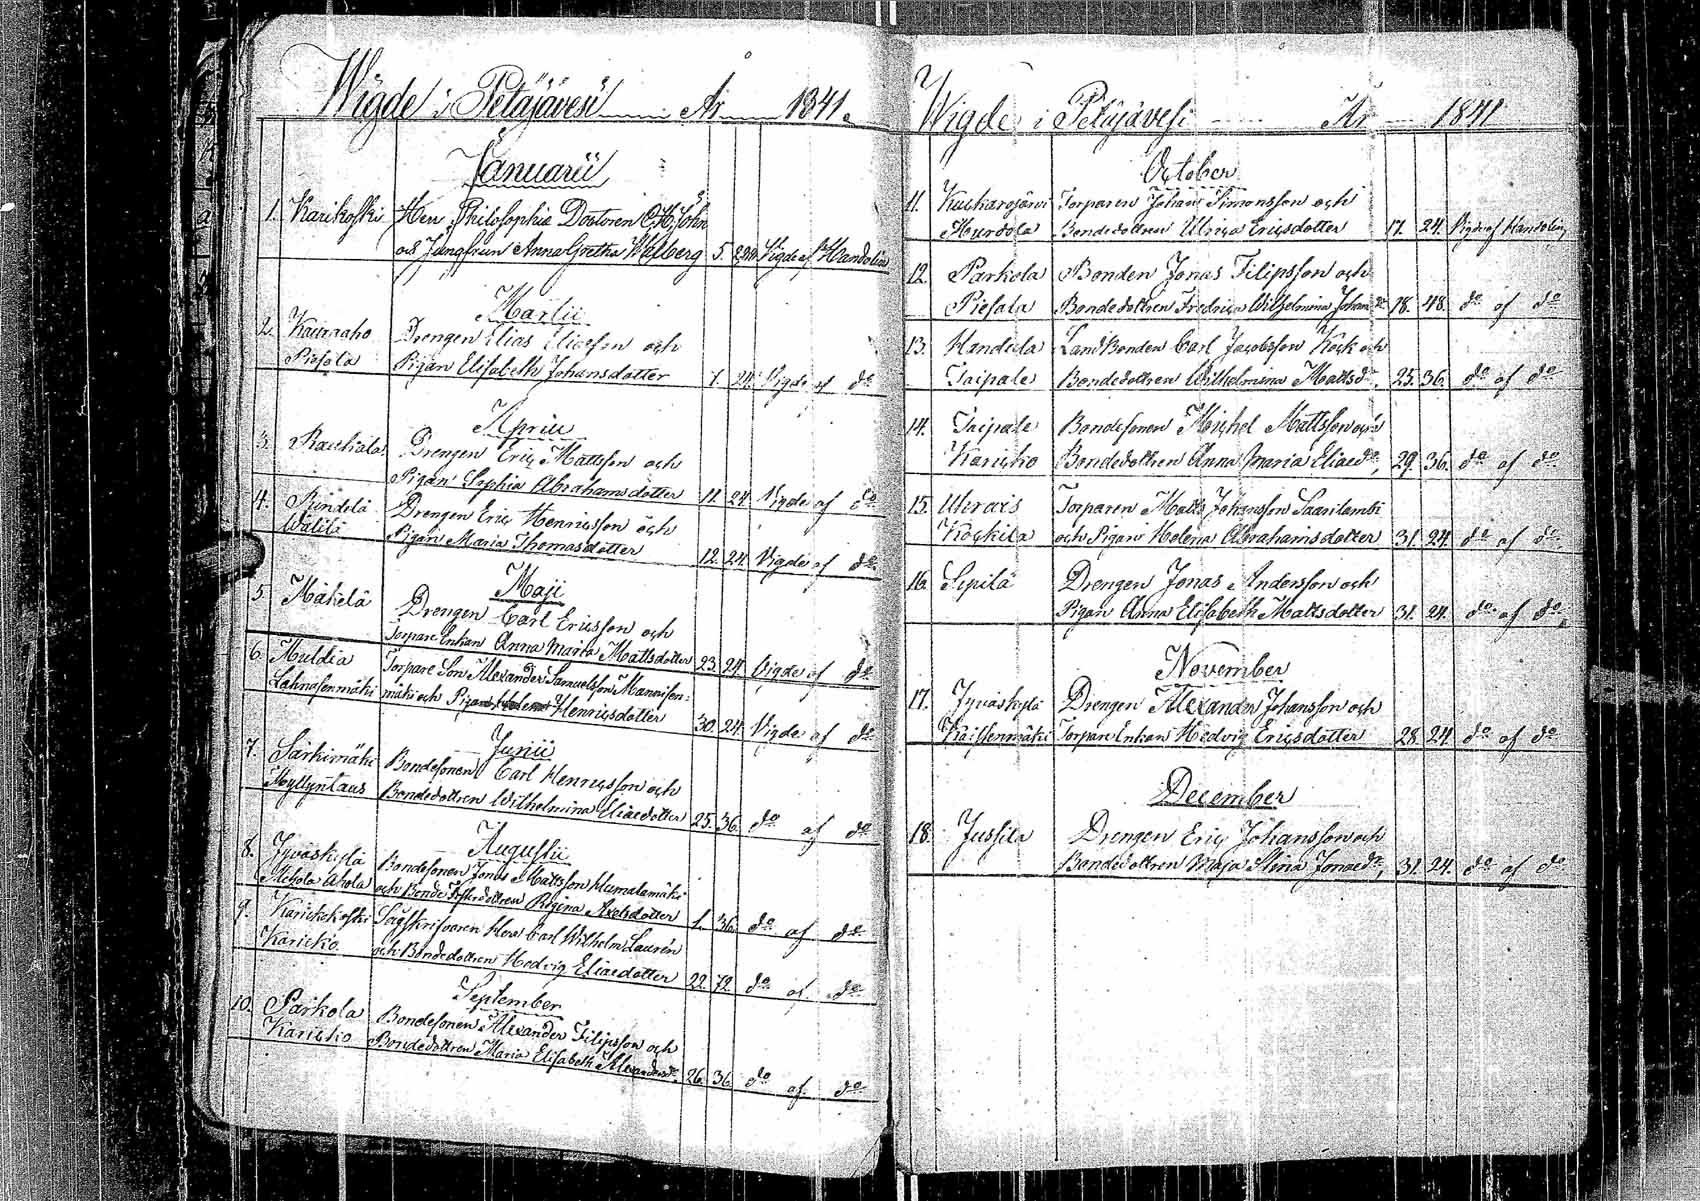 Wigde i Petäjävesi År 1841.
Januarii
1. Karikoski Herr Philosophiæ Doctoren
och Jungfrun Anna Gretha 5. Vigde af Handolin
Martii
2. Kauraaho Drengen Elias Eliasson och
Piesala Pigan Elisabeth Johansdotter 7. 24. Vigde af do
April
3. Drengen Eriç Mattsson och
Pigan Sophia Abrahamsdotter 11. 24. Vigde af do
4. Rindelä Drengen Eriç Henriçsson och
Pigan Maria Thomasdotter 12. 24. Vigde af do
Maji
5. Mäkelä Drengen Carl Eriçsson och
Torpare Enkan Anna Maria Mattsdotter 23. 24. Vigde af do
6. Muldia Torpare Son Alexander Samuelsson
mäki och Pigan Henriçsdotter 30. 24. Vigde af do
Junii
7. Särkimäki Bondesonen Carl Henriçsson och
Myllyntaus Bondedottren Wilhelmina Eliaedotter 25. 36. do af do
Augustii
8. Jyväskylä Bondesonen Jonas Mattsson Humalamäki
och Bonde Regina Axelsdotter 1. 36. do af do
9. Karikkoski Herr Carl Wilhelm Laurén
Kariçko och Bondedottren Hedvig Eliaedotter 22. 72. do af do
September
10. Parkola Bondesonen Alexander Filipsson och
Kariçko Bondedottren Maria Elisabeth Alexandersdr. 26. 36. do af do
Wigde i Petäjävesi År 1841
October
11. Kuukarojärvi Torparen Johan Simonsson och
Hurdola Bondedottren Ulriça Eriçsdotter 17. 24. Vigde af Handolin
12. Parkola Bonden Jonas Filipsson och
Piesala Bondedottren Fredriça Wilhelmina Johansdr 18. 48. do af do
13. Landbonden Carl Jacobsson Köçk och
Taipale Bondedottren Wilhelmina Mattsdr, 25. 36. do af do
14. Taipale Bondesonen Miçhel Mattsson och
Kariçko Bondedottren Anna Maria Eliaedr, 29. 36. do af do
15. Uhrais Torparen Matts Johansson Saarilambi
Köçkilä och Pigan Helena Abrahamsdotter 31. 24. do af do
16. Sepilä Drengen Jonas Andersson och
Pigan Anna Elisabeth Mattsdotter 31. 24. do af do
November
17. Jyväskylä Drengen Alexander Johansson och
Torpare Enkan Hedvig Eriçsdotter 28. 24. do af do
December
18. Jussila Drengen Eriç Johansson och
Bondedottren Maja Stina Jonaedr, 31. 24. do af do